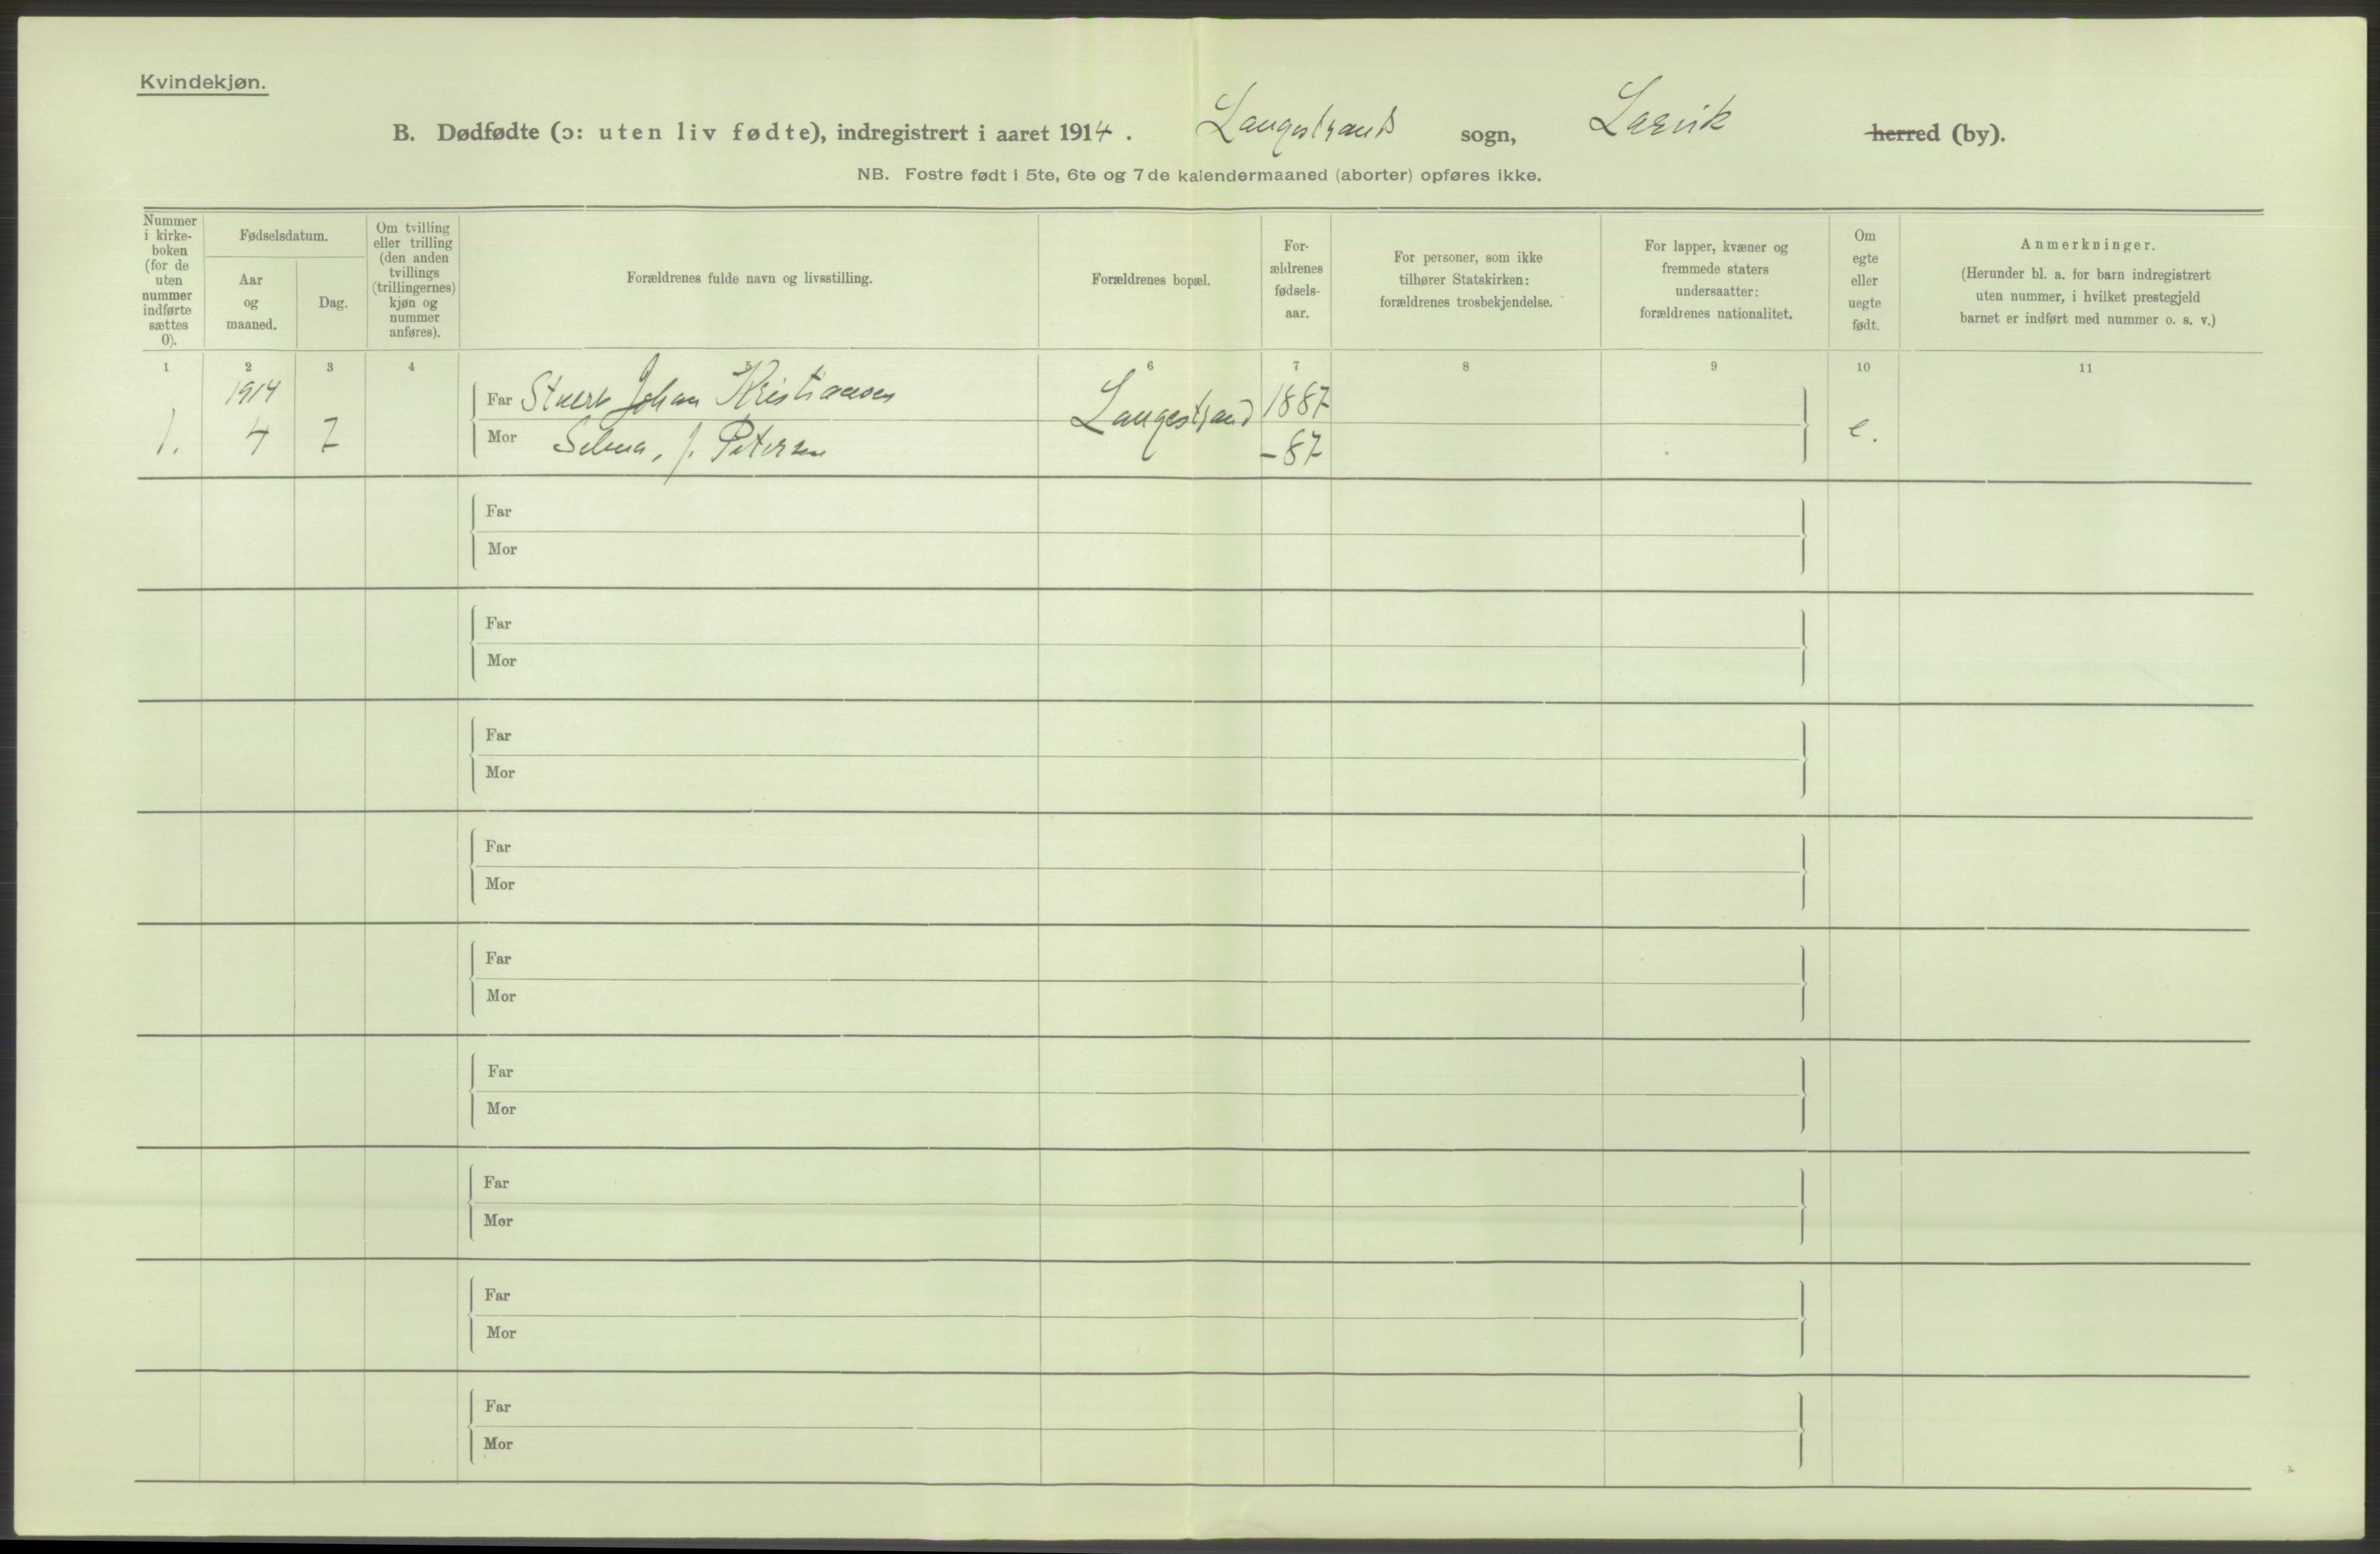 Kvindekjøn.
B. Dødfødte (ɔ: uten liv fødte), indregistrert i aaret 1914. Langestrands sogn, Larvik herred (by).
NB. Fostre født i 5te, 6te og 7de kalendermaaned (aborter) opføres ikke.
Nummer
i kirke-
boken
(for de
uten
nummer
indførte
sættes
0).
Fødselsdatum.
Aar
og
maaned.
Dag.
Om tvilling
eller trilling
(den anden
tvillings
(trillingernes)
kjøn og
nummer
anføres).
Forældrenes fulde navn og livsstilling.
Forældrenes bopæl.
For-
ældrenes
fødsels-
aar.
For personer, som ikke
tilhører Statskirken:
forældrenes trosbekjendelse.
For lapper, kvæner og
fremmede staters
undersaatter:
forældrenes nationalitet.
Om
egte
eller
uegte
født.
Anmerkninger.
(Herunder bl. a. for barn indregistrert
uten nummer, i hvilket prestegjeld
barnet er indført med nummer o. s. v.)
1 2 3 4 5 6 7 8 9 10 11
1914
Far Johan Kristiansen Langestrand 1887
1. 4 7 Mor Selma, f. Petersen -87 e.
Far
Mor
Far
Mor
Far
Mor
Far
Mor
Far
Mor
Far
Mor
Far
Mor
Far
Mor
Far
Mor